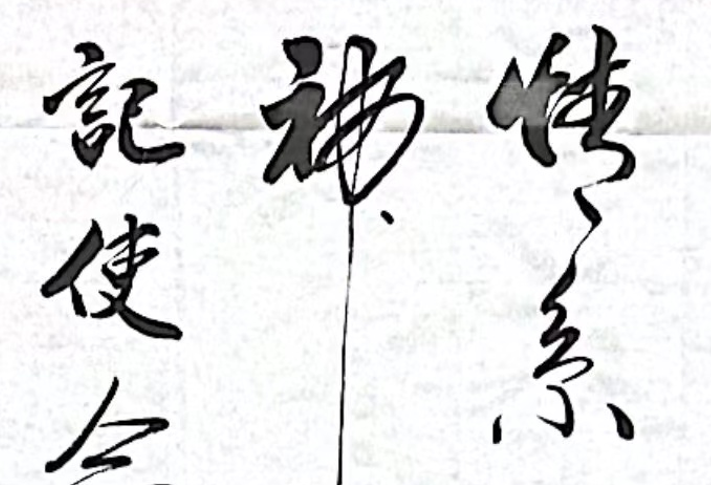 情系
神
記使